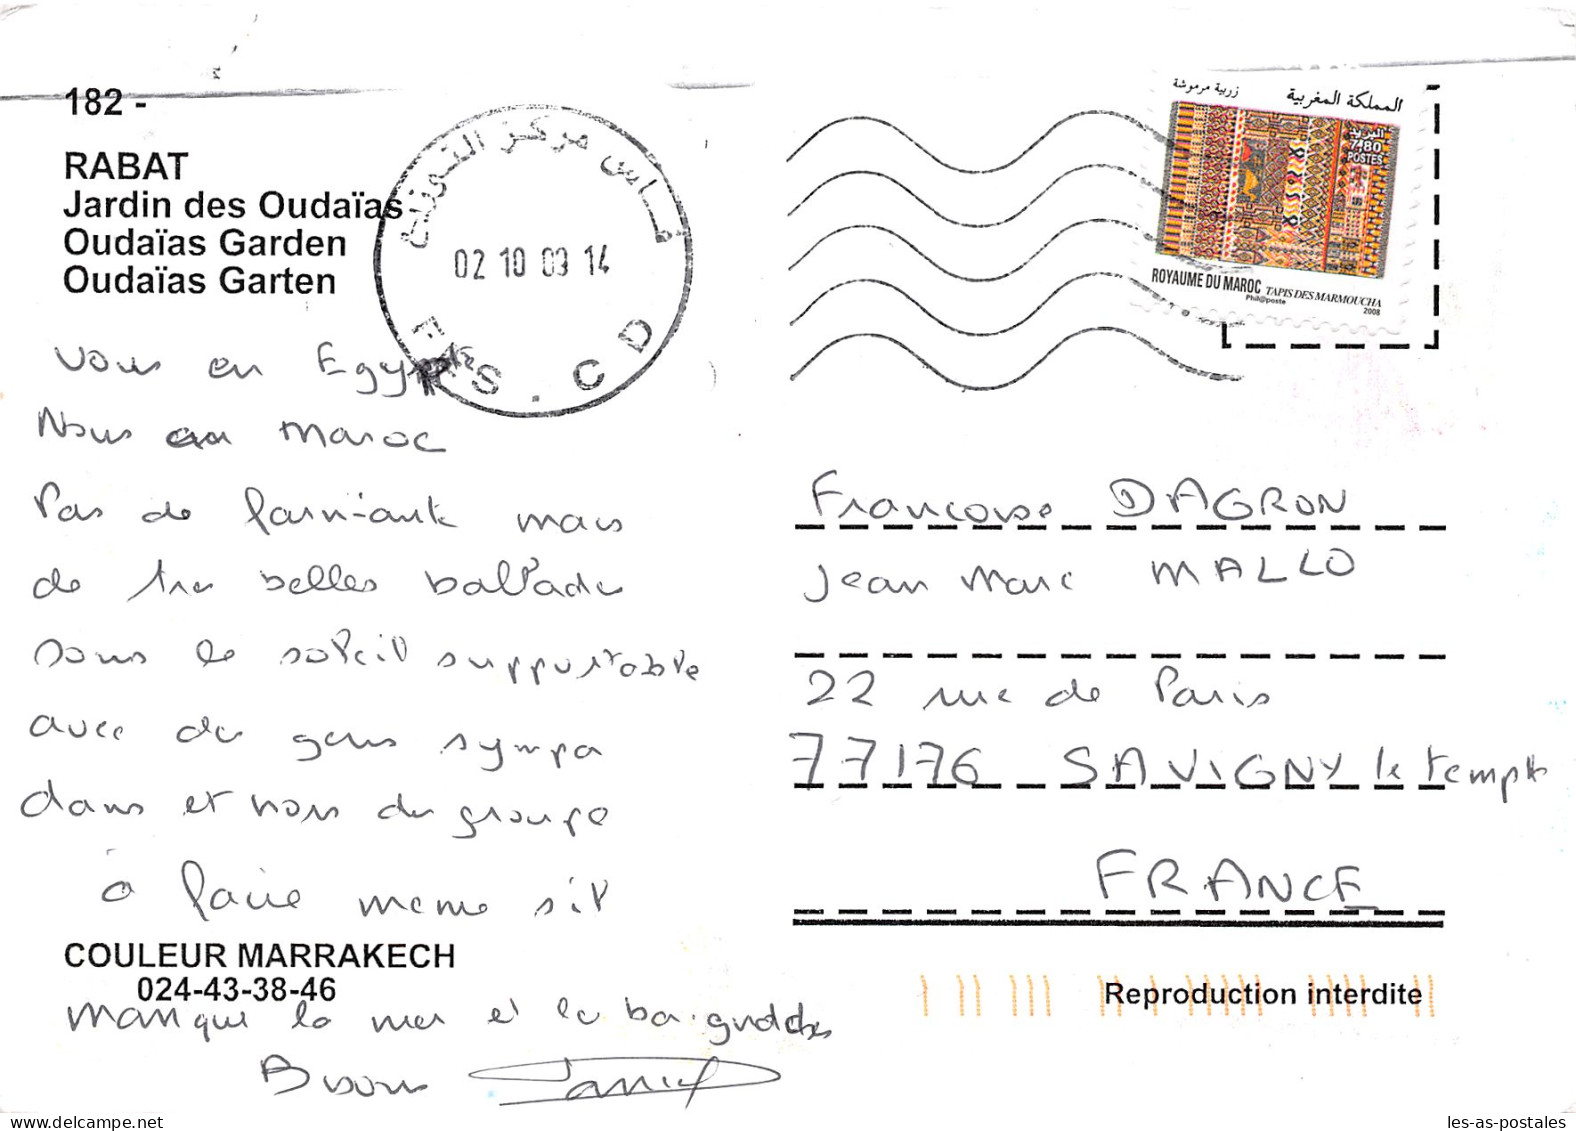 182 -
RABAT
Jardin des Oudaïas
Oudaïas Garden
Oudaïas Garten
فاس مركز التوزيع
02 10 09 14
FES . CD
المملكة المغربية
زربية مرموشة
البريد
7,80
POSTES
ROYAUME DU MAROC TAPIS DES MARMOUCHA
Phil@poste
2008
Vous en Egypte
Nous au Maroc
Pas de farniante mais
de très belles ballades
sous le soleil supportable
avec des gens sympa
dans et hors du groupe
à faire même s'il
manque la mer et les baignades
Bisous
Françoise DAGRON
Jean Marc MALLO
22 rue de Paris
77176 SAVIGNY le temple
FRANCE
COULEUR MARRAKECH
024-43-38-46
Reproduction interdite
delcampe.net
les-as-postales